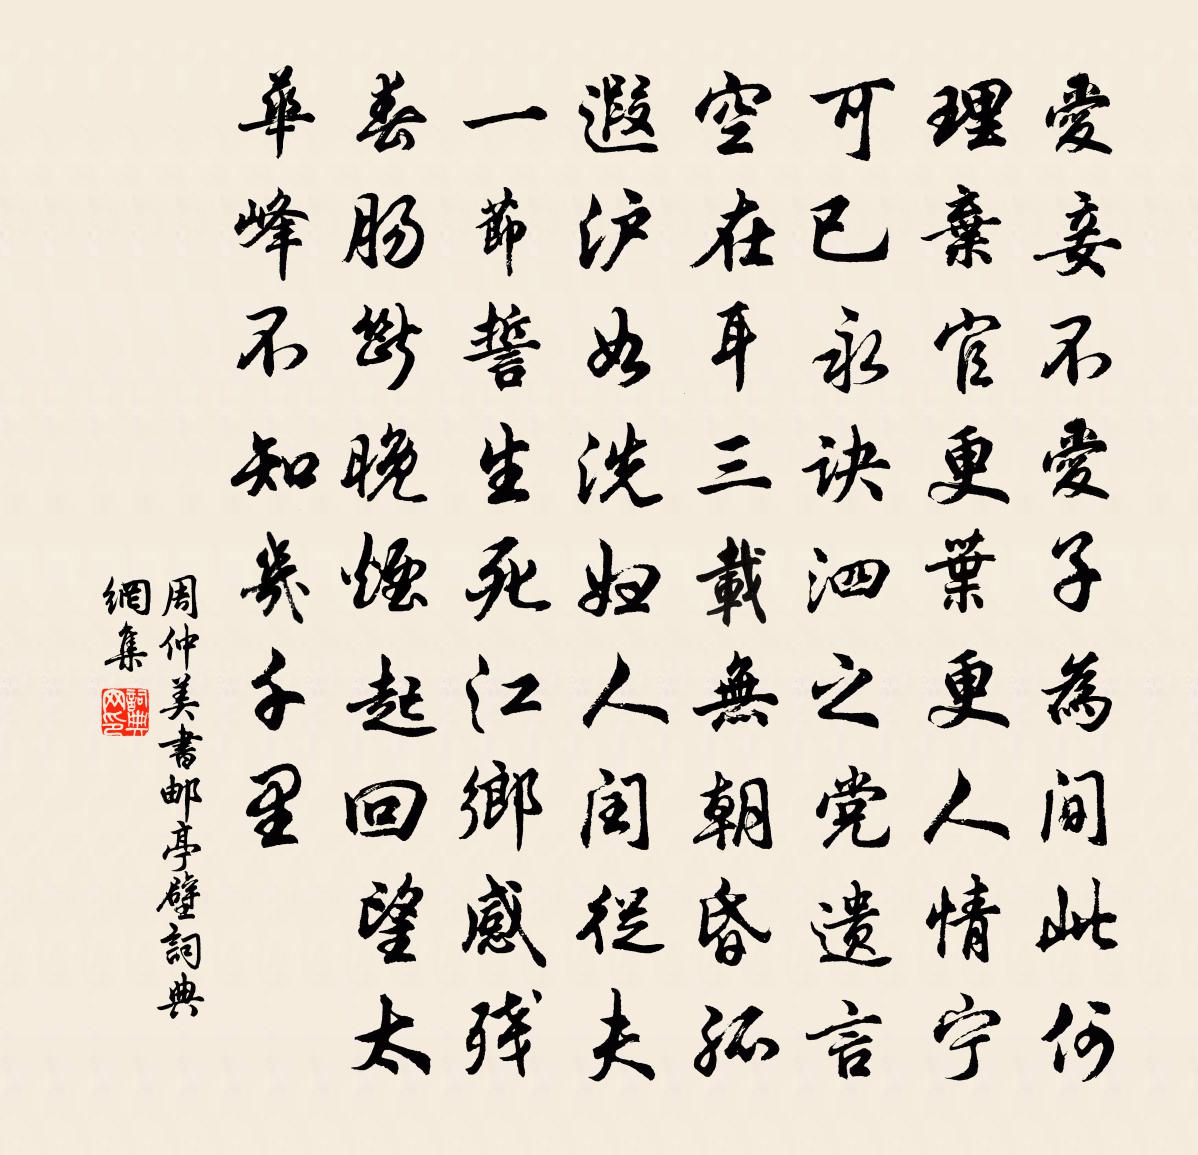 愛妾不愛子為間此何
理棄官更葉更人情宁
可已永訣泗之党遺言
空在耳三載無朝昏孤
遐沪如洗妇人闰從夫
一節誓生死江鄉感残
春肠斷晚煙起回望太
華峰不知幾千里
周仲美書邮亭壁詞典
網集
詞典网印